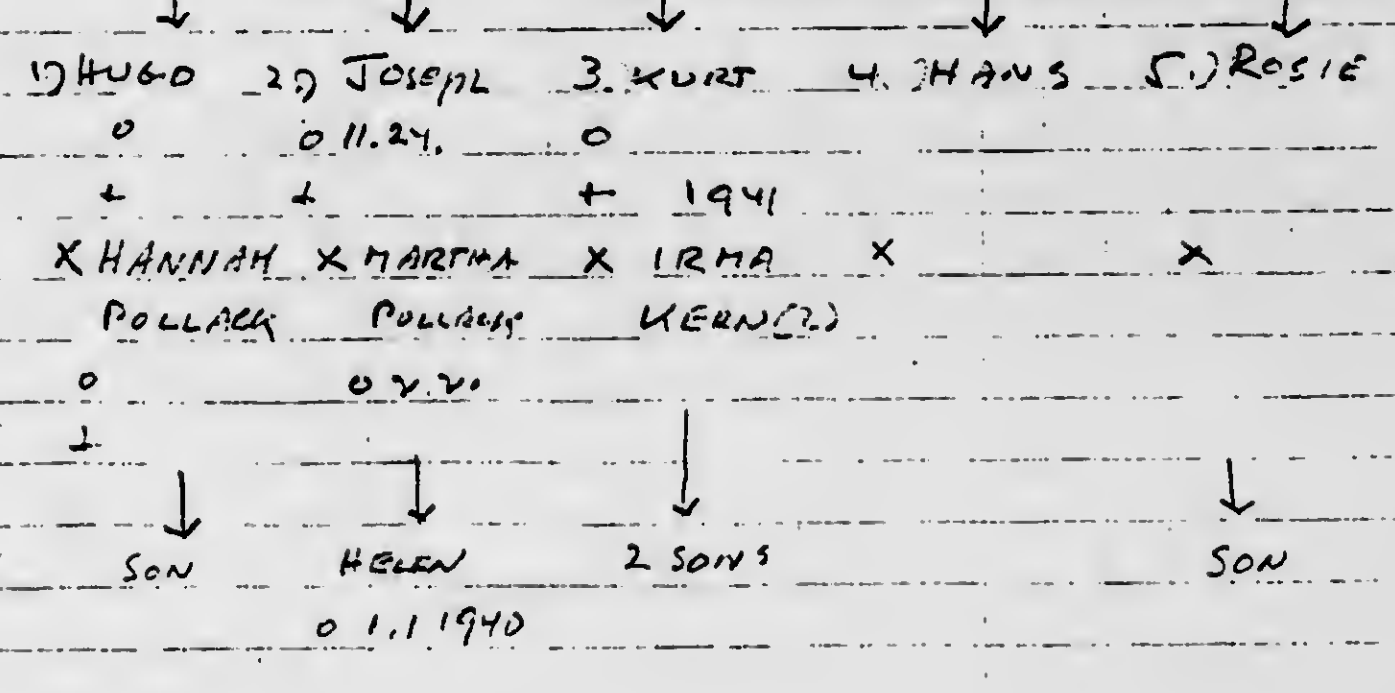 1.) HUGO 2.) JOSEPH 3. KURT 4. HANS 5.) ROSIE
o o 11.24. o
+ + + 1941
X HANNAH X MARTHA X IRMA X X
POLLACK POLLACK KERN(?)
o o 2.20
+
SON HELEN 2 SONS SON
o 1.1 1940